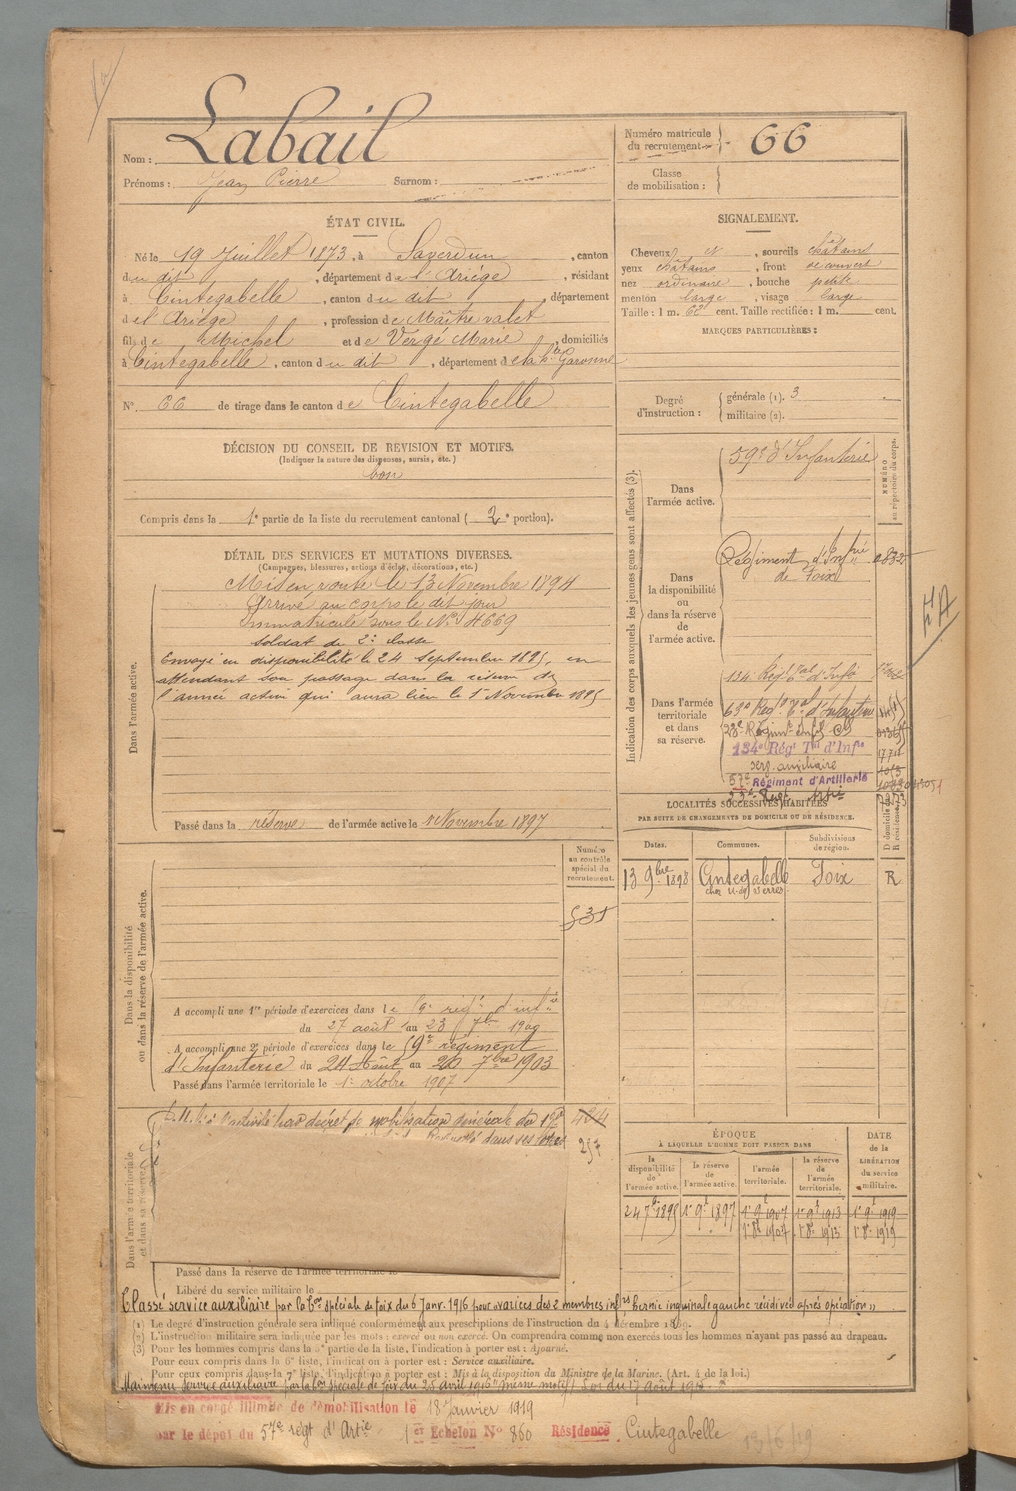 Labail
Nom :
Prénoms : Jean Pierre Surnom :
Numéro matricule du recrutement 66
Classe de mobilisation :
ÉTAT CIVIL.
Né le 19 Juillet 1873, à Saverdun, canton
du dit, département de l'Ariége, résidant
à Cintegabelle, canton du dit département
de l'Ariége, profession de Maître valet
fils de Michel et de Vergé Marie, domiciliés
à Cintegabelle, canton du dit, département de la hte Garonne
N° 66 de tirage dans le canton de Cintegabelle
SIGNALEMENT.
Cheveux N, sourcils châtains
yeux châtains, front découvert
nez ordinaire, bouche petite
menton large, visage large
Taille : 1 m. 62 cent. Taille rectifiée : 1 m. cent.
MARQUES PARTICULIÈRES :
Degré d'instruction : générale (1). 3
militaire (2).
DÉCISION DU CONSEIL DE REVISION ET MOTIFS.
(Indiquer la nature des dispenses, sursis, etc.)
bon
Compris dans la 1e partie de la liste du recrutement cantonal (2e portion).
DÉTAIL DES SERVICES ET MUTATIONS DIVERSES.
(Campagnes, blessures, actions d'éclat, décorations, etc.)
Dans l'armée active.
Mis en route le 13 Novembre 1894
Arrivé au corps le dit jour
Immatriculé sous le N°
soldat de 2e classe
Envoyé en disponibilité le 24 Septembre 1895, en
attendant son passage dans la réserve de
l'armée active qui aura lieu le 1er Novembre 1895
Passé dans la réserve de l'armée active le 1 Novembre 1897
Indication des corps auxquels les jeunes gens sont affectés (3).
NUMÉRO au répertoire du corps.
Dans l'armée active.
59e d'Infanterie
Dans la disponibilité ou dans la réserve de l'armée active.
Régiment d'Infrie
de Foix
Dans l'armée territoriale et dans sa réserve.
134 Régt Tal d'Infie
63e Regt Tal d'Infanterie
134e Régt Tal d'Infie
serv. auxiliaire
57e Régiment d'Artillerie
LOCALITÉS SUCCESSIVES HABITÉES
PAR SUITE DE CHANGEMENTS DE DOMICILE OU DE RÉSIDENCE.
D domicile R résidence
Dates. Communes. Subdivisions de région.
13 9bre 1898 Cintegabelle Foix R
Numéro au contrôle spécial du recrutement.
531
Dans la disponibilité ou dans la réserve de l'armée active.
A accompli une 1re période d'exercices dans le régt d'infie
du 27 août au 23 7bre 1900
A accompli une 2e période d'exercices dans le 59e régiment
d'Infanterie du 24 Août au 20 7bre 1903
Passé dans l'armée territoriale le 1er octobre 1907
Dans l'armée territoriale et dans sa réserve
Rappelé à l'activité par décret de mobilisation générale du 1er
dans ses foyers
Passé dans la réserve de l'armée territoriale le
Libéré du service militaire le
ÉPOQUE
À LAQUELLE L'HOMME DOIT PASSER DANS
la disponibilité de l'armée active. la réserve de l'armée active. l'armée territoriale. la réserve de l'armée territoriale. DATE de la LIBÉRATION du service militaire.
24 7bre 1895 1er 9bre 1897 1er 9bre 1907 1er 9bre 1913 1er 9bre 1919
1er 8bre 1907 1er 8bre 1913 1er 8bre 1919
Classé service auxiliaire par la Con spéciale de foix du 6 Janr. 1916 pour varices des 2 membres infrs hernie inguinale gauche récidivée après opération
(1) Le degré d'instruction générale sera indiqué conformément aux prescriptions de l'instruction du 4 décembre 1889.
(2) L'instruction militaire sera indiquée par les mots : exercé ou non exercé. On comprendra comme non exercés tous les hommes n'ayant pas passé au drapeau.
(3) Pour les hommes compris dans la 5e partie de la liste, l'indication à porter est : Ajourné.
Pour ceux compris dans la 6e liste, l'indication à porter est : Service auxiliaire.
Pour ceux compris dans la 7e liste, l'indication à porter est : Mis à la disposition du Ministre de la Marine. (Art. 4 de la loi.)
Maintenu service auxiliaire par la Con spéciale de foix du 25 avril 1916 même motif loi du 17 août 1915
Mis en congé illimité de démobilisation le 18 Janvier 1919
par le dépôt du 57e régt d'Artie 1er Echelon N° 860 Résidence Cintegabelle
13/6/19